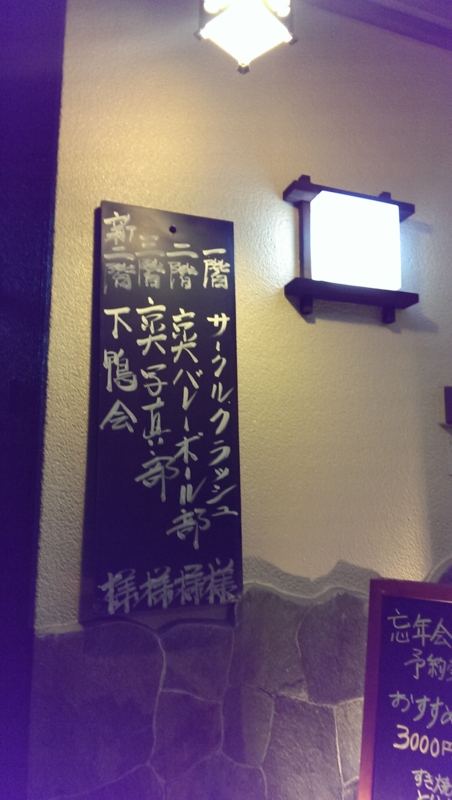 一階 サークルクラッシュ 様
二階 京大バレーボール部 様
三階 京大写真部 様
新二階 下鴨会 様
忘年会
予約
おすすめ
3000円
すき焼